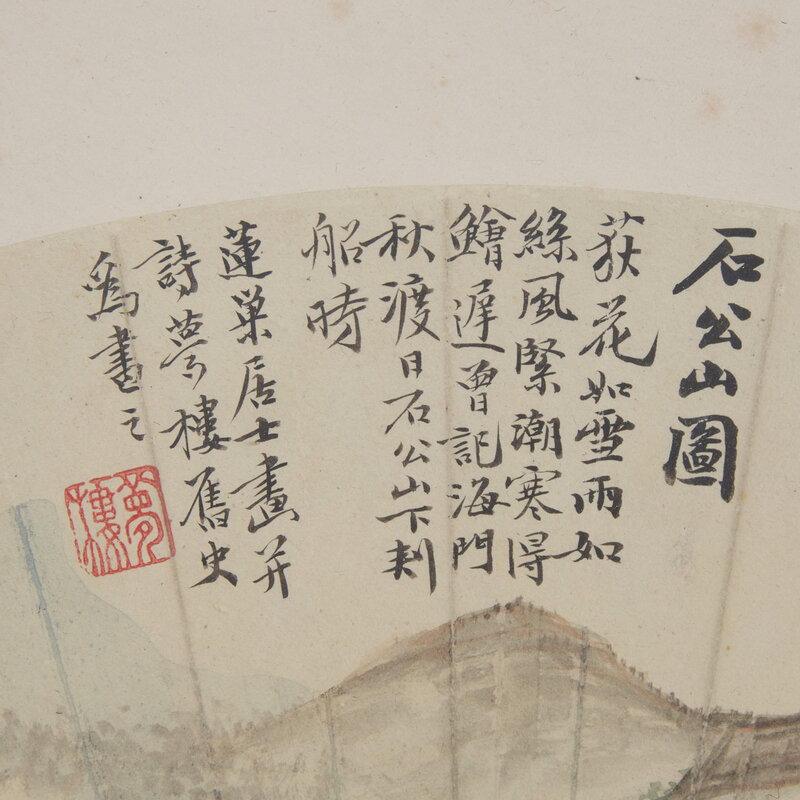 石公山圖
荻花如雪雨如
絲風緊潮寒得
鱠遲曾記海門
秋渡日石公山下刾
船時
蓮巢居士畫并
詩夢樓舊史
爲書之
夢樓